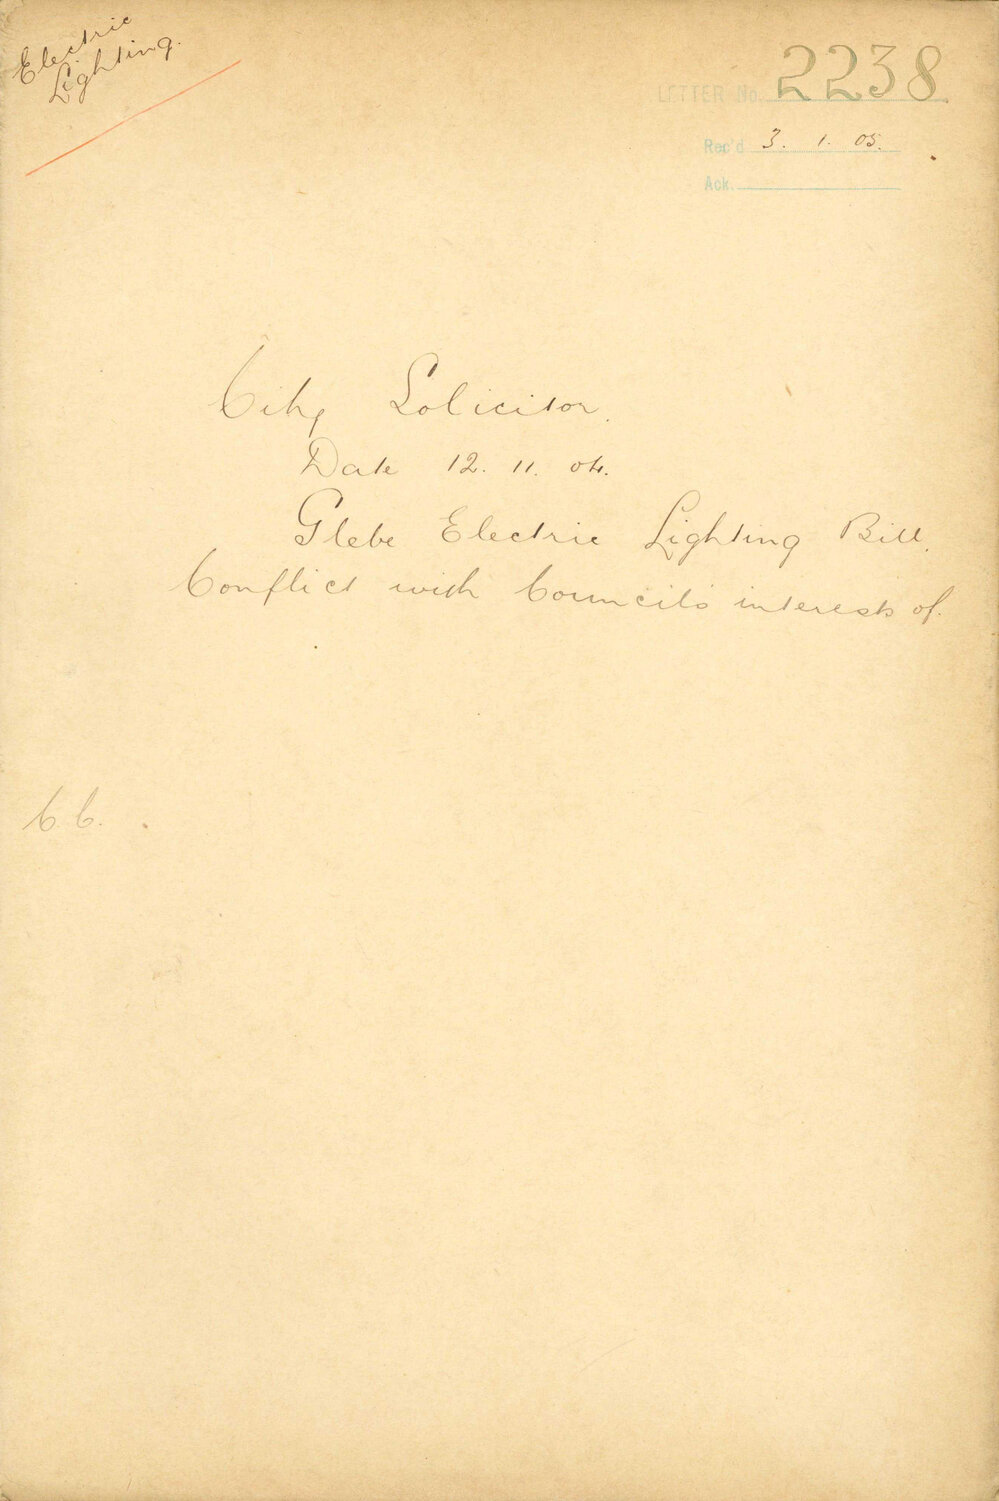 Electric
Lighting.
LETTER No. 2238
Rec'd 3. 1. 05.
Ack.
City Solicitor.
Date 12. 11. 04.
Glebe Electric Lighting Bill.
Conflict with Council's interests of.
C. C.